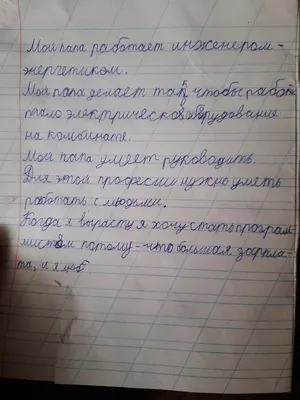 Мой папа работает инженером-
энергетиком.
Мой папа делает так, чтобы рабо
тало электрическое оборудование
на комбинате.
Мой папа умеет руководить.
Для этой професии нужно уметь
работать с людьми.
Когда я вырасту я хочу стать програм
мистом потому-что большая зарпла-
та, и я люб